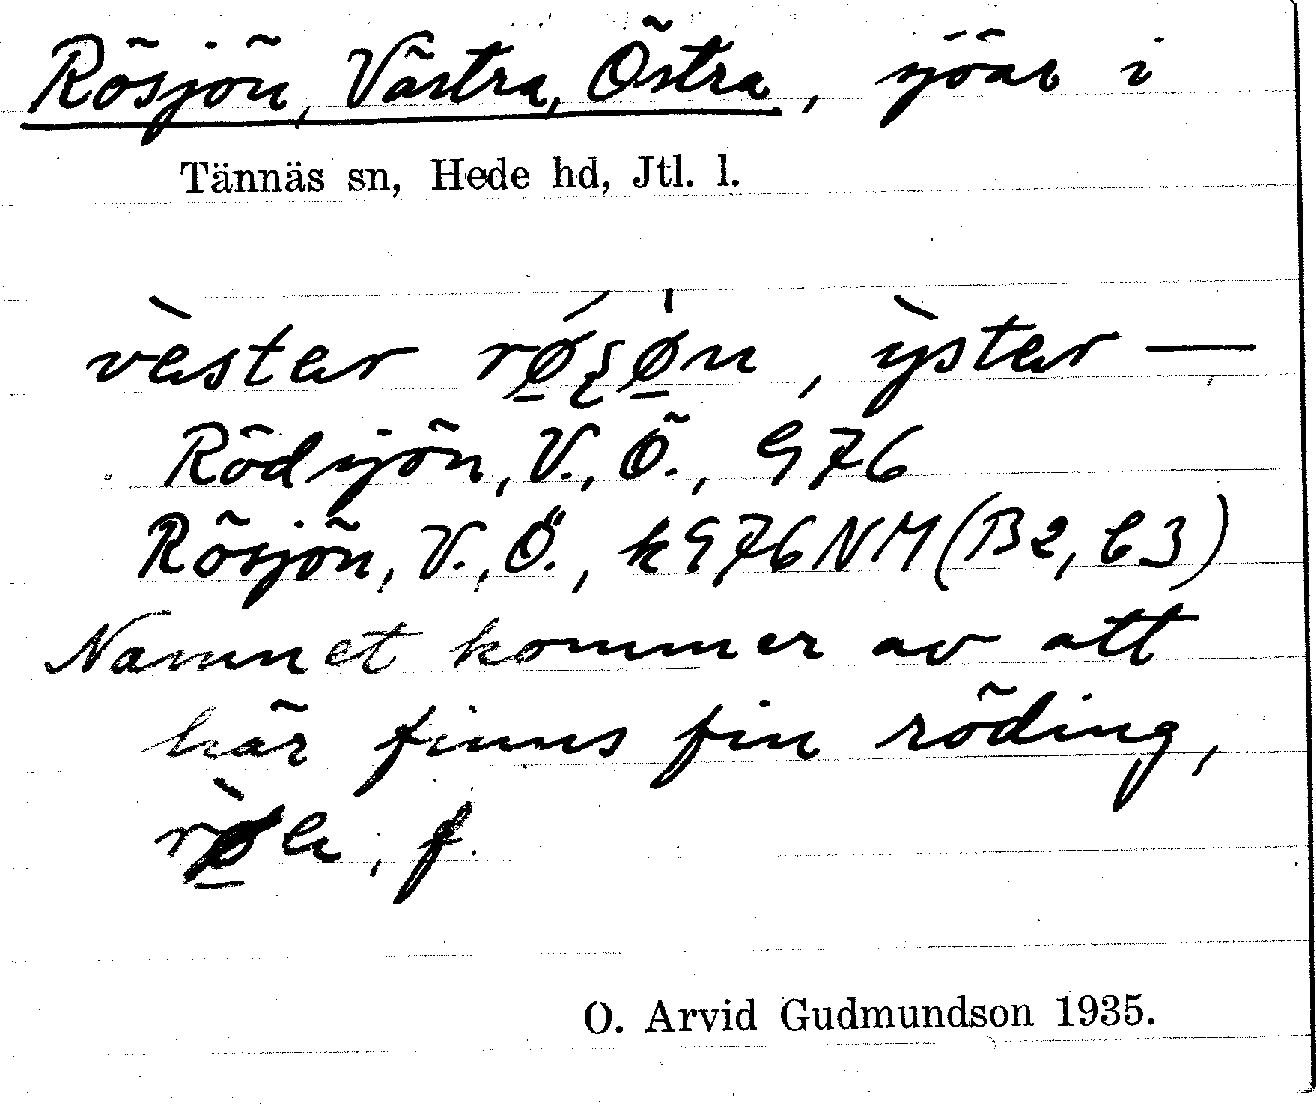 Rösjön, Västra, Östra, sjöar i
Tännäs sn, Hede hd, Jtl. l.
vèstar rǿ̲ʂø̲̍n, ỳstar —
Rödsjön, V., Ö., G76
Rösjön, V., Ö., kG76NM(B2, C3)
Namnet kommer av att
här finns fin röding,
rø̲̀a, f.
O. Arvid Gudmundson 1935.